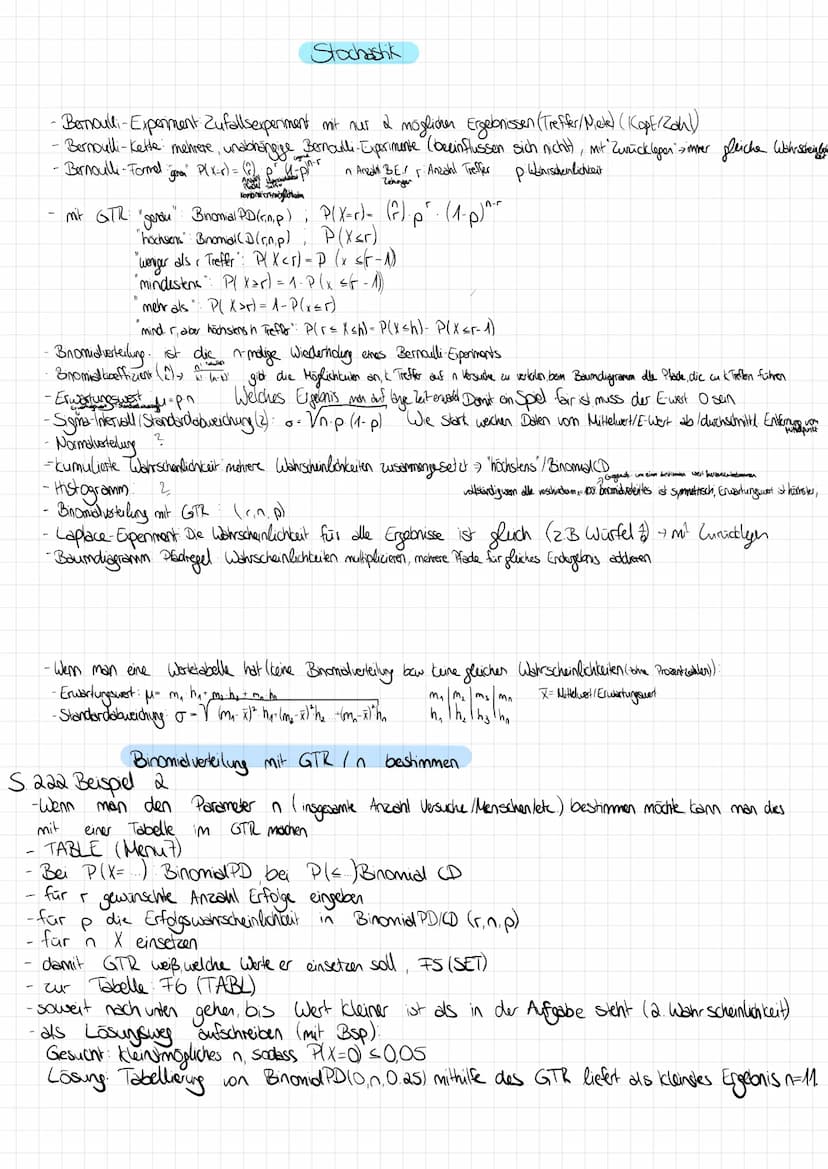 Stochastik
- Bernoulli-Experiment: Zufallsexperiment mit nur 2 möglichen Ergebnissen (Treffer/Niete) (Kopf/Zahl)
- Bernoulli-Kette: mehrere, unabhängige Bernoulli-Experimente (beeinflussen sich nicht), mit "Zurücklegen" → immer gleiche Wahrscheinlich
- Bernoulli-Formel "genau" P(X=r) = (n r) · p^r · (1-p)^n-r n Anzahl B.E./ r: Anzahl Treffer p Wahrscheinlichkeit
Ziehungen
- mit GTR: "genau": BinomialPD(r,n,p) ; P(X=r) = (n r) · p^r · (1-p)^n-r
"höchstens": BinomialCD(r,n,p) ; P(X≤r)
"weniger als r Treffer": P(X<r) = P (x ≤ r-1)
"mindestens": P(X≥r) = 1-P(x ≤ r-1)
"mehr als": P(X>r) = 1-P(x≤r)
"mind. r, aber höchstens h Treffer": P(r ≤ X ≤h) = P(X≤h) - P(X≤r-1)
- Binomialverteilung: ist die n-malige Wiederholung eines Bernoulli-Experiments
- Binomialkoeffizient (n k) → gibt die Möglichkeiten an, k Treffer auf n Versuche zu verteilen, beim Baumdiagramm alle Pfade, die zu k Treffern führen
- Erwartungswert μ=p·n Welches Ergebnis man auf lange Zeit erwartet Damit ein Spiel fair ist muss der E-wert 0 sein
- Sigma-Intervall (Standardabweichung(2): σ = √n·p·(1-p) Wie stark weichen Daten vom Mittelwert/E-Wert ab / durchschnittl. Entfernung vom
- Normalverteilung ?
- kumulierte Wahrscheinlichkeit: mehrere Wahrscheinlichkeiten zusammengesetzt → "höchstens" / BinomialCD
- Histogramm: ? ist symmetrisch, Erwartungswert ist höchster,
- Binomialverteilung mit GTR: (r,n,p)
- Laplace-Experiment: Die Wahrscheinlichkeit für alle Ergebnisse ist gleich (z.B Würfel 1/6) → mit Zurücklegen
- Baumdiagramm Pfadregel: Wahrscheinlichkeiten multiplizieren, mehrere Pfade für gleiches Endergebnis addieren
- Wenn man eine Wertetabelle hat (keine Binomialverteilung bzw keine gleichen Wahrscheinlichkeiten (ohne Prozentzahlen)):
- Erwartungswert: μ= m₁ · h₁ + m₂ · h₂ + mₙ · hₙ m₁ | m₂ | m₃ | mₙ x̄ = Mittelwert/Erwartungswert
- Standardabweichung: σ = √(m₁-x̄)² · h₁+(m₂-x̄)² · h₂ ...+(mₙ-x̄)² · hₙ h₁ | h₂ | h₃ | hₙ
Binomialverteilung mit GTR / n bestimmen
S. 222 Beispiel 2
- Wenn man den Parameter n (insgesamte Anzahl Versuche/Menschen/etc.) bestimmen möchte kann man dies
mit einer Tabelle im GTR machen
- TABLE (Menu 7)
- Bei P(X=...) BinomialPD, bei P(≤...) Binomial CD
- für r gewünschte Anzahl Erfolge eingeben
- für p die Erfolgswahrscheinlichkeit in BinomialPD/CD (r,n,p)
- für n X einsetzen
- damit GTR weiß, welche Werte er einsetzen soll, F5 (SET)
- zur Tabelle: F6 (TABL)
- soweit nach unten gehen, bis Wert kleiner ist als in der Aufgabe steht (2. Wahrscheinlichkeit)
- als Lösungsweg aufschreiben (mit Bsp):
Gesucht: kleinstmögliches n, sodass P(X=0) ≤ 0,05
Lösung: Tabellierung von BinomialPD(0,n,0.25) mithilfe des GTR liefert als kleinstes Ergebnis n=11